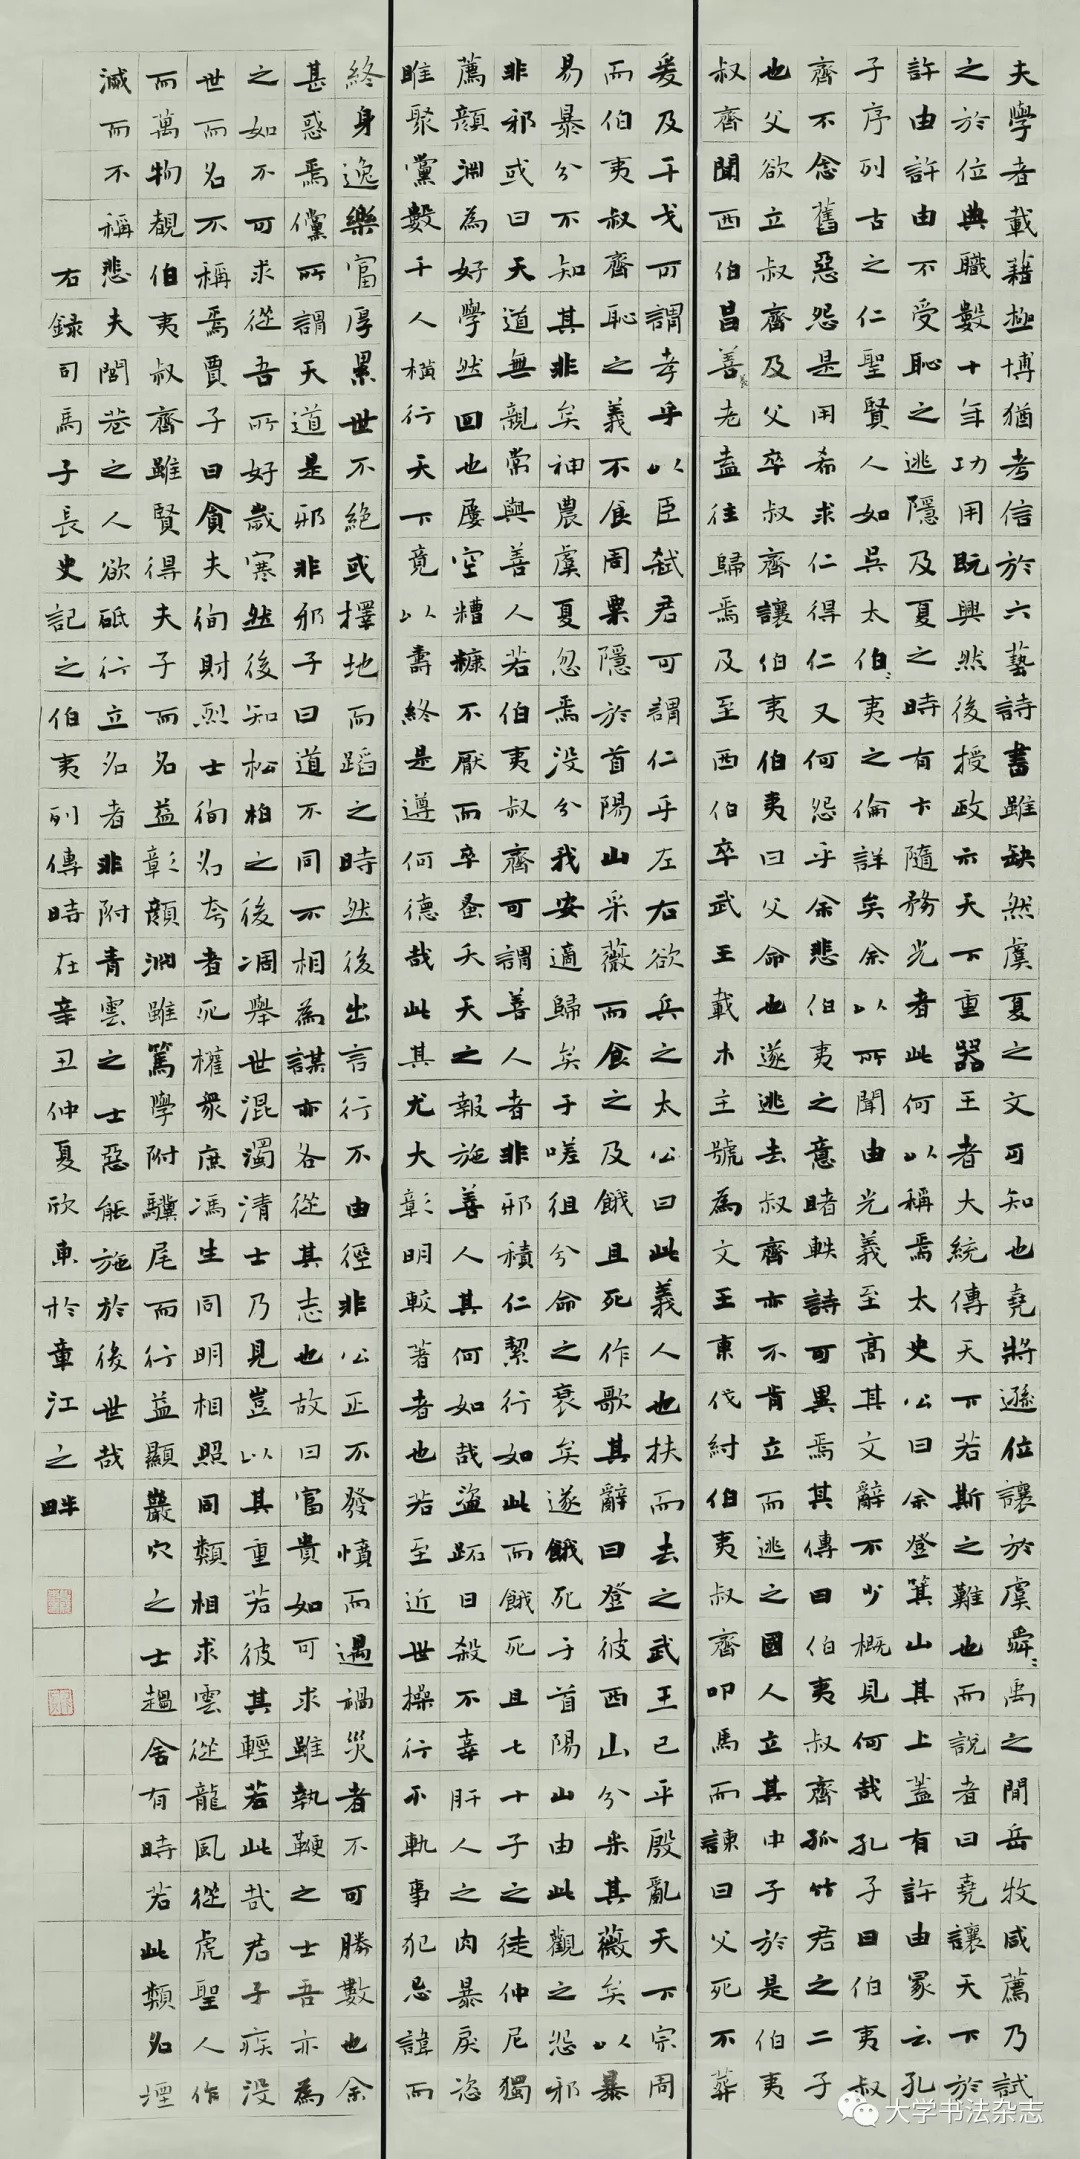 夫學者載籍極博猶考信於六藝詩書雖缺然虞夏之文可知也堯將遜位讓於虞舜：禹之間岳牧咸薦乃試
之於位典職數十年功用既興然後授政示天下重器王者大統傳天下若斯之難也而說者曰堯讓天下於
許由許由不受恥之逃隱及夏之時有卞隨務光者此何以稱焉太史公曰余登箕山其上蓋有許由冢云孔
子序列古之仁聖賢人如吳太伯：夷之倫詳矣余以所聞由光義至高其文辭不少概見何哉孔子曰伯夷叔
齊不念舊惡怨是用希求仁得仁又何怨乎余悲伯夷之意睹軼詩可異焉其傳曰伯夷叔齊孤竹君之二子
也父欲立叔齊及父卒叔齊讓伯夷伯夷曰父命也遂逃去叔齊亦不肯立而逃之國人立其中子於是伯夷
叔齊聞西伯昌善養老盍往歸焉及至西伯卒武王載木主號為文王東伐紂伯夷叔齊叩馬而諫曰父死不葬
爰及干戈可謂孝乎以臣弒君可謂仁乎左右欲兵之太公曰此義人也扶而去之武王已平殷亂天下宗周
而伯夷叔齊恥之義不食周粟隱於首陽山采薇而食之及餓且死作歌其辭曰登彼西山兮采其薇矣以暴
易暴兮不知其非矣神農虞夏忽焉沒兮我安適歸矣于嗟徂兮命之衰矣遂餓死于首陽山由此觀之怨邪
非邪或曰天道無親常與善人若伯夷叔齊可謂善人者非邪積仁絜行如此而餓死且七十子之徒仲尼獨
薦顏淵為好學然回也屢空糟糠不厭而卒蚤夭天之報施善人其何如哉盜跖日殺不辜肝人之肉暴戾恣
睢聚黨數千人橫行天下竟以壽終是遵何德哉此其尤大彰明較著者也若至近世操行不軌事犯忌諱而
終身逸樂富厚累世不絕或擇地而蹈之時然後出言行不由徑非公正不發憤而遇禍災者不可勝數也余
甚惑焉儻所謂天道是邪非邪子曰道不同不相為謀亦各從其志也故曰富貴如可求雖執鞭之士吾亦為
之如不可求從吾所好歲寒然後知松柏之後凋舉世混濁清士乃見豈以其重若彼其輕若此哉君子疾沒
世而名不稱焉賈子曰貪夫徇財烈士徇名夸者死權眾庶馮生同明相照同類相求雲從龍風從虎聖人作
而萬物覩伯夷叔齊雖賢得夫子而名益彰顏淵雖篤學附驥尾而行益顯巖穴之士趨舍有時若此類名堙
滅而不稱悲夫閭巷之人欲砥行立名者非附青雲之士惡能施於後世哉
右録司馬子長史記之伯夷列傳時在辛丑仲夏欣東於章江之畔
大学书法杂志